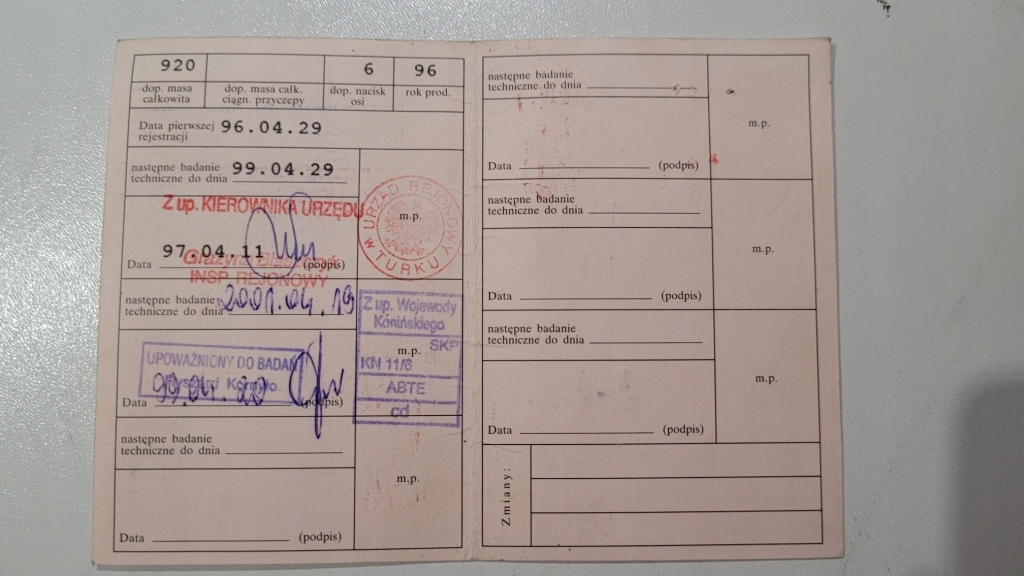 920 6 96
dop. masa całkowita
dop. masa całk. ciągn. przyczepy
dop. nacisk osi
rok prod.
Data pierwszej rejestracji 96.04.29
następne badanie
techniczne do dnia 99.04.29
Z up. KIEROWNIKA URZĘDU
m.p.
URZĄD REJONOWY W TURKU
97.04.11
Data (podpis)
Grażyna
INSP. REJONOWY
następne badanie
techniczne do dnia 2001.04.19
Z up. Wojewody
Konińskiego
SKP
m.p.
KN 11/6
ABTE
cd
UPOWAŻNIONY DO BADAŃ
99.04.20
Data (podpis)
następne badanie
techniczne do dnia
m.p.
Data (podpis)
następne badanie
techniczne do dnia
m.p.
Data (podpis)
następne badanie
techniczne do dnia
m.p.
Data (podpis)
następne badanie
techniczne do dnia
m.p.
Data (podpis)
Zmiany: